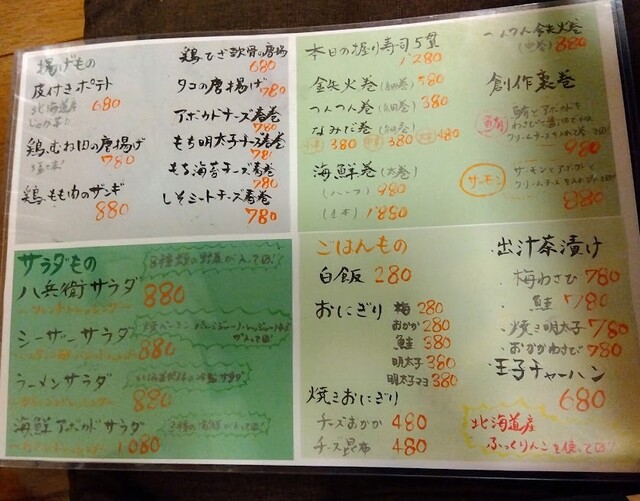 揚げもの
皮付きポテト
北海道産 680
鶏むね肉の唐揚げ
780
鶏もも肉のザンギ
880
鶏ひざ軟骨の唐揚
680
タコの唐揚げ 780
アボカドチーズ春巻
780
もち明太子チーズ春巻
780
もち海苔チーズ春巻
780
しそミートチーズ春巻
780
本日の握り寿司5貫
1280
鉄火巻(細巻) 580
つんつん巻(細巻) 380
なみだ巻(細巻)
380 380 480
海鮮巻(太巻)
(ハーフ) 980
(1本) 1880
つんつん鉄火巻
880
創作裏巻
鮪 鮪とアボカドを
980
サーモン サーモンとアボカドと
880
サラダもの
8種類の野菜が入って〼!
八兵衛サラダ 880
シーザーサラダ
880
ラーメンサラダ
880
海鮮アボカドサラダ
1080
ごはんもの
白飯 280
おにぎり 梅 280
おかか 280
鮭 380
明太子 380
明太子マヨ 380
焼きおにぎり
チーズおかか 480
チーズ昆布 480
出汁茶漬け
梅わさび 780
鮭 780
焼き明太子 780
おかかわさび 780
玉子チャーハン
680
北海道産
ふっくりんこを使って〼!